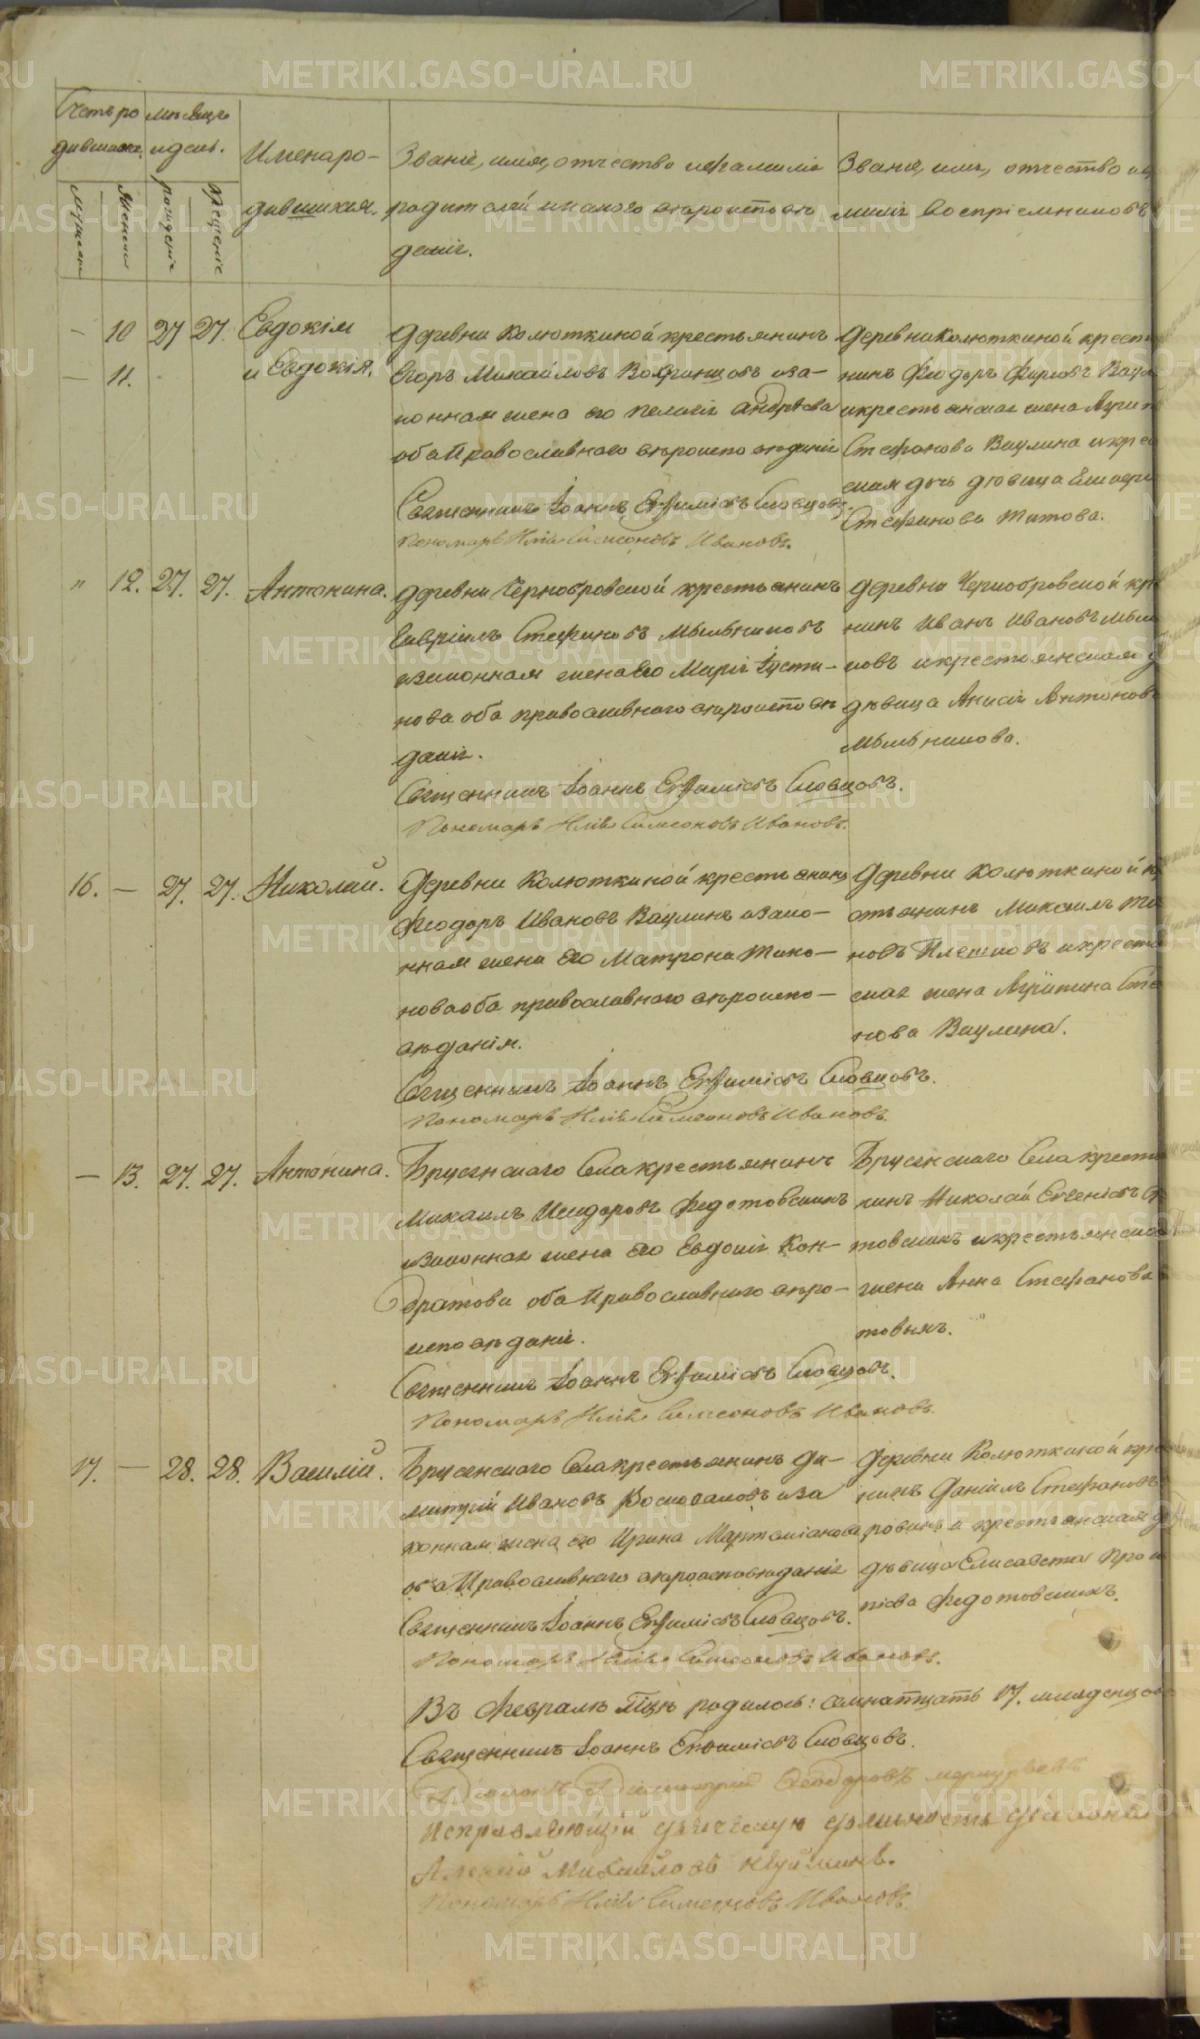 Счетъ ро
дившихся.
мѣсяцъ
и день.
мужеска
женска
рожденiе
крещенiе
Имена ро-
дившихся.
Званiе, имя, отчество и фамилiя
родителей и какого вѣроисповѣ
данiя.
Званiе, имя, отчество и фа
милiя воспрiемниковъ
— 10 27 27. Евдокiм
— 11. и Евдокiя.
Деревни Колюткиной крестьянинъ
Егоръ Михайловъ и за-
конная жена его Пелагiя Андреева
оба Православнаго вѣроисповѣданiя
Священникъ Iоаннъ Евфимiевъ Словцовъ.
Пономарь Илiя Симеоновъ Ивановъ.
Деревни Колюткиной крестья
нинъ Феодоръ Фирсовъ Ваул
и крестьянская жена Агрип
Стефанова Ваулина и кре
ская дочь дѣвица
Стефанова Титова.
" 12. 27. 27. Антонина.
деревни Чернобровской крестьянинъ
Гаврiилъ Стефановъ Мыльниковъ
и законная жена его Марiя Iусти-
нова оба православнаго вѣроисповѣ
данiя.
Священникъ Iоаннъ Евфимiевъ Словцовъ.
Пономарь Илiя Симеоновъ Ивановъ.
деревни Чернобровской кре
нинъ Иванъ Ивановъ Мыль
ковъ и крестьянская д
дѣвица Анисiя Антонов
Мыльникова.
16. — 27. 27. Николай.
Деревни Колюткиной крестьянинъ
Феодоръ Ивановъ Ваулинъ и зако-
нная жена его Матрона Тихо-
нова оба православнаго вѣроиспо-
вѣданiя.
Священникъ Iоаннъ Евфимiевъ Словцовъ.
Пономарь Илiя Симеоновъ Ивановъ.
Деревни Колюткиной к
стьянинъ Михаилъ Ти
новъ Плешковъ и кресть
ская жена Агрипина Сте
нова Ваулина.
— 13. 27. 27. Антонина.
Брусянскаго Села крестьянинъ
Михаилъ Исидоровъ Федотовскихъ
и законная жена его Евдокiя Кон-
дратова оба Православнаго вѣро-
исповѣданiя.
Священникъ Iоаннъ Евфимiевъ Словцовъ.
Пономарь Илiя Симеоновъ Ивановъ.
Брусянскаго Села крестья
нинъ Николай Евгенiевъ Ф
товскихъ и крестьянская
жена Анна Стефанова
товыхъ.
17. — 28. 28. Василiй.
Брусянскаго Села крестьянинъ Ди-
митрiй Ивановъ и за
конная жена его Ирина
оба Православнаго вѣроисповѣданiя
Священникъ Iоаннъ Евфимiевъ Словцовъ.
Пономарь Илiя Симеоновъ Ивановъ.
деревни Колюткиной кре
нинъ Данiилъ Стефановъ
и крестьянская д
дѣвица Елисавета Прок
пiева Федотовскихъ.
Въ Февралѣ мцѣ родилось: семнатцать 17. младенцов
Священникъ Iоаннъ Евфимiевъ Словцовъ.
Дiаконъ Димитрiй Феодоровъ Меркурьевъ
Исправляющiй дьяческую должность дiаконъ
Алексiй Михайловъ
Пономарь Илiя Симеоновъ Ивановъ.
METRIKI.GASO-URAL.RU